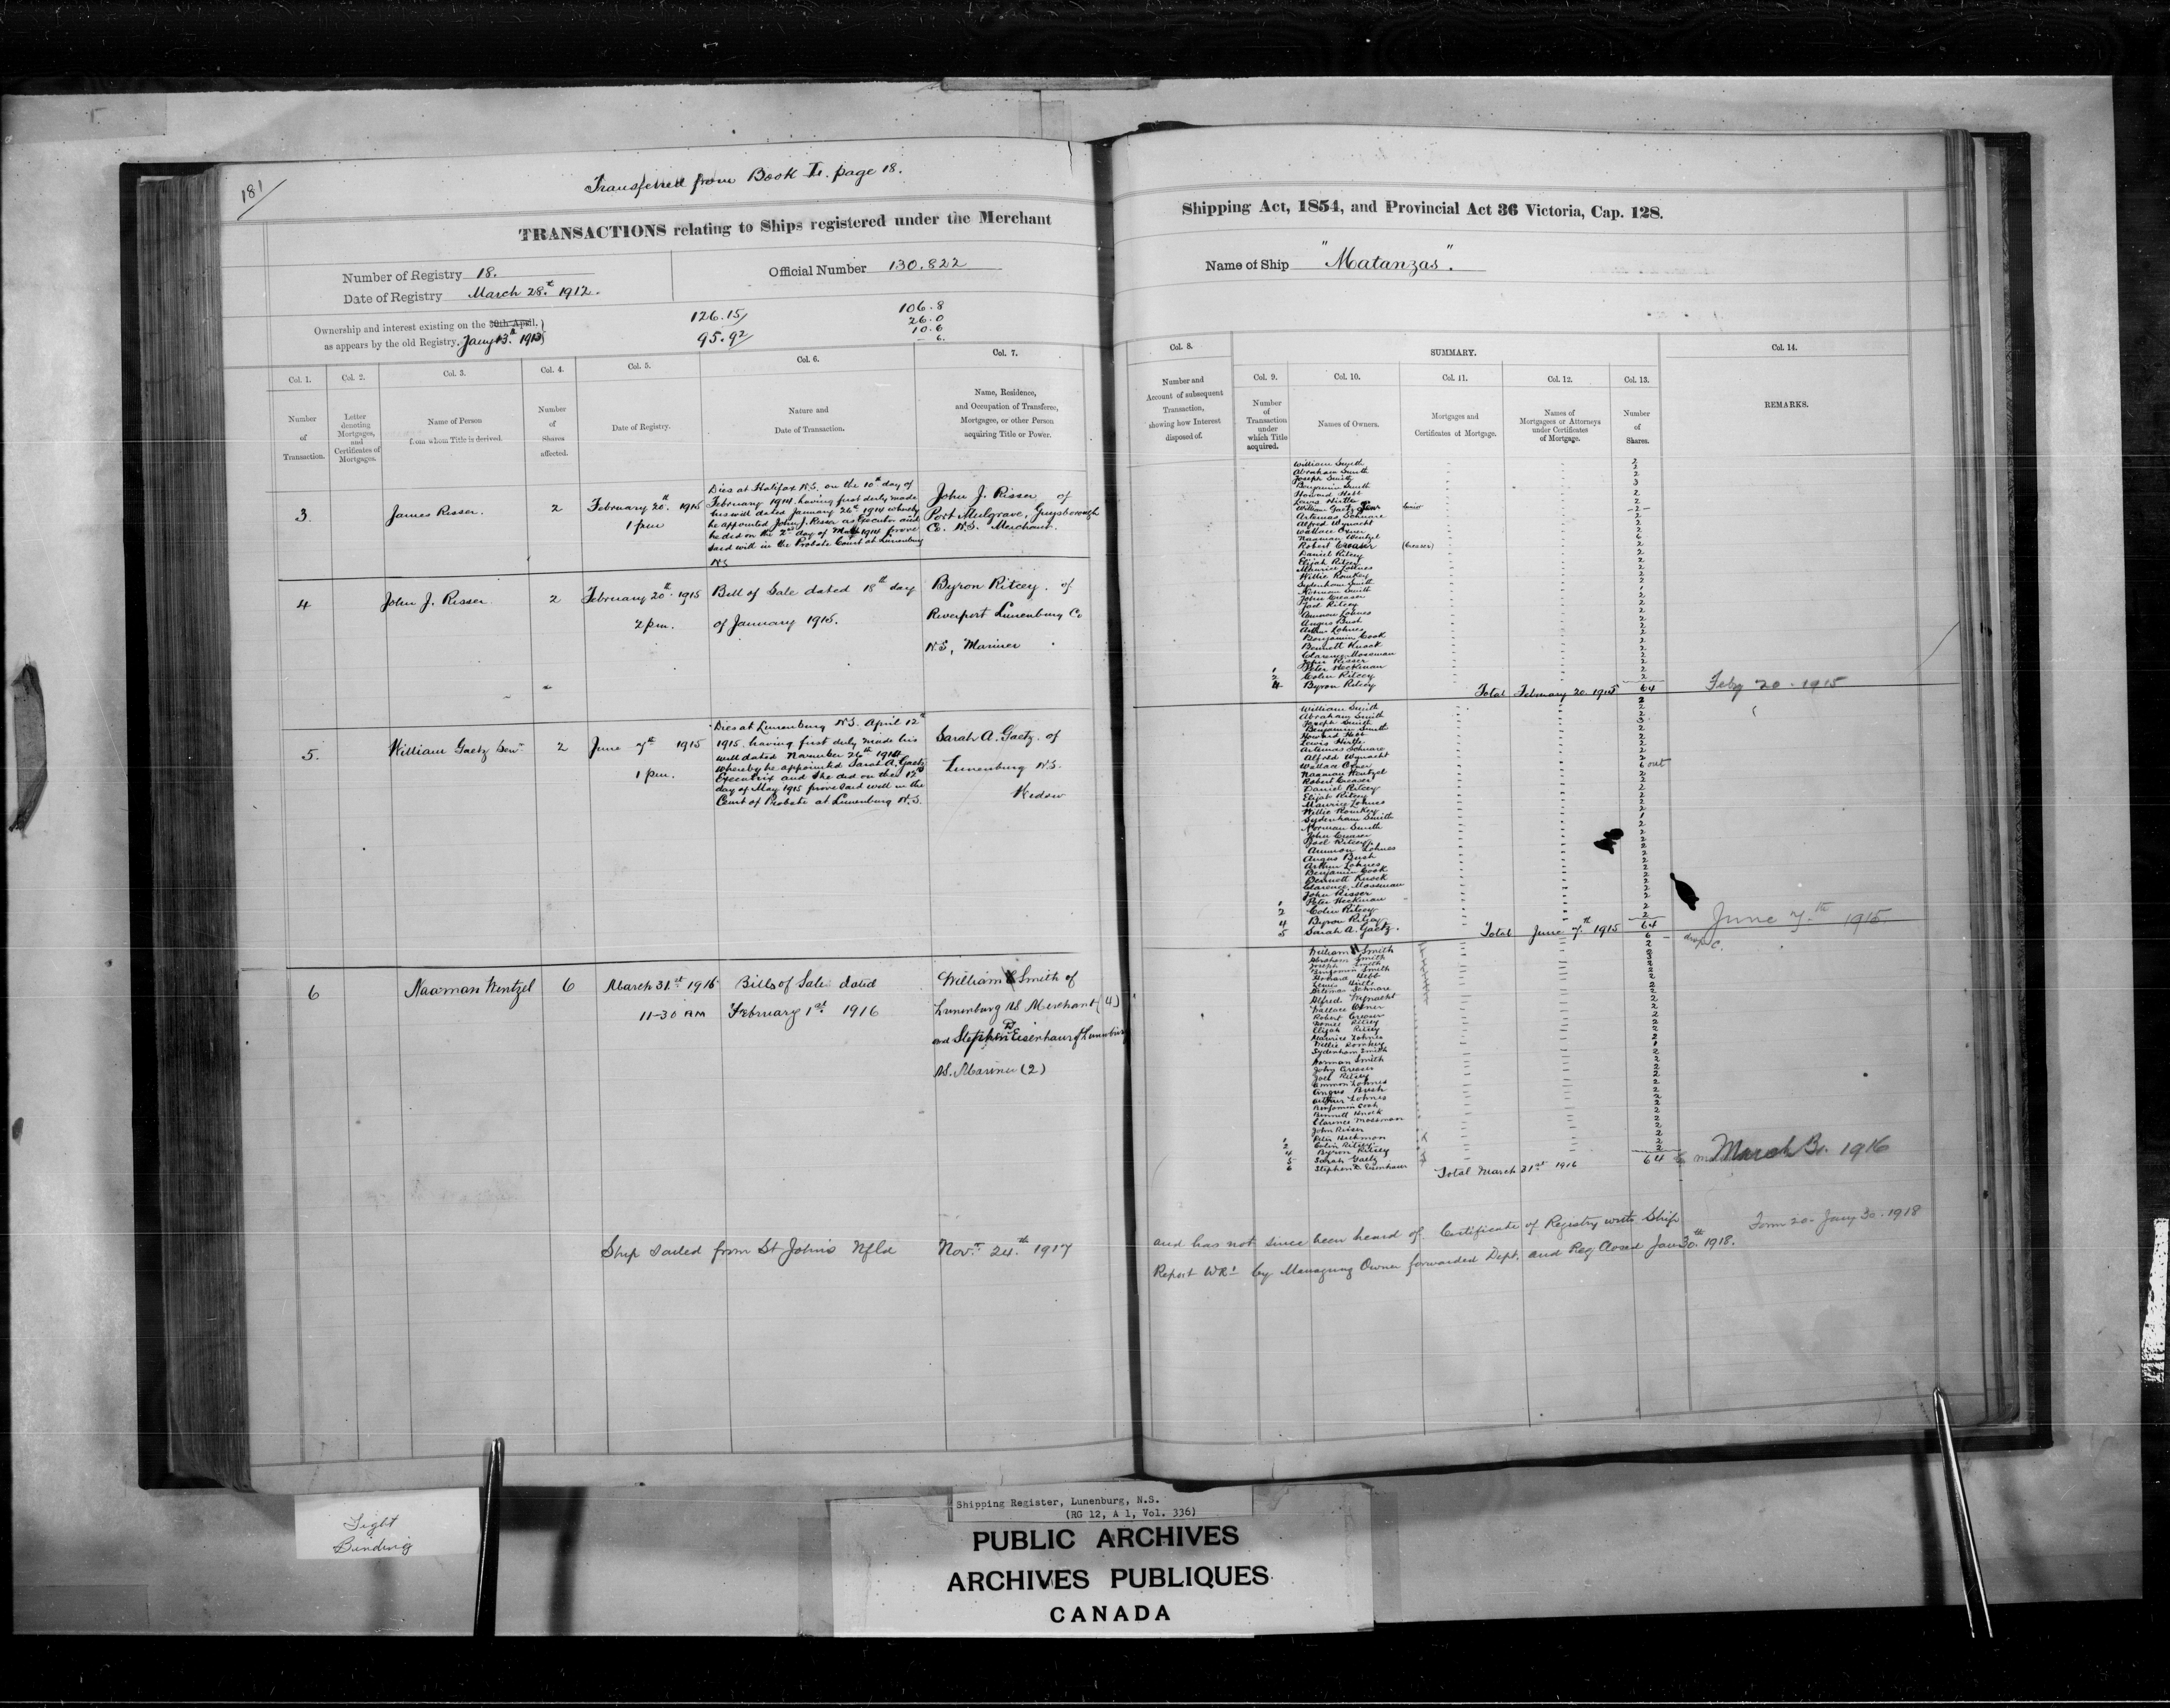 181
Transferred from Book I. page 18.
TRANSACTIONS relating to Ships registered under the Merchant
Shipping Act, 1854, and Provincial Act 36 Victoria, Cap. 128.
Number of Registry 18.
Date of Registry March 28th 1912.
Official Number 130.822
Name of Ship "Matanzas".
Ownership and interest existing on the 30th April.
as appears by the old Registry. Jany 13th 1913
126.15
95.92
106.8
26.0
10.6
6.
Col. 1.
Number
of
Transaction.
Col. 2.
Letter
denoting
Mortgages,
and
Certificates of
Mortgages.
Col. 3.
Name of Person
from whom Title is derived.
Col. 4.
Number
of
Shares
affected.
Col. 5.
Date of Registry.
Col. 6.
Nature and
Date of Transaction.
Col. 7.
Name, Residence,
and Occupation of Transferee,
Mortgagee, or other Person
acquiring Title or Power.
Col. 8.
Number and
Account of subsequent
Transaction,
showing how Interest
disposed of.
SUMMARY.
Col. 9.
Number
of
Transaction
under
which Title
acquired.
Col. 10.
Names of Owners.
Col. 11.
Mortgages and
Certificates of Mortgage.
Col. 12.
Names of
Mortgagees or Attorneys
under Certificates
of Mortgage.
Col. 13.
Number
of
Shares.
Col. 14.
REMARKS.
3.
James Risser.
2
February 20th 1915
1 pm
Dies at Halifax N.S. on the 10th day of
February 1914 having first duly made
his will dated January 26th 1914 whereby
he appointed John J. Risser as Executor and
he did on the 2nd day of 1914 prove
said will in the Probate Court at Lunenburg
N.S.
John J. Risser of
Port Mulgrave, Guysborough
Co. N.S. Merchant.
4
John J. Risser
2
February 20th 1915
2 pm.
Bill of Sale dated 18th day
of January 1915.
Byron Ritcey. of
Riverport Lunenburg Co
N.S, Mariner
5.
William Gaetz Senr
2
June 7th 1915
1 pm.
Dies at Lunenburg N.S. April 12th
1915. having first duly made his
will dated November 26th 1914
whereby he appointed Sarah A. Gaetz
Executrix and she did on the 12th
day of May 1915 prove said will in the
Court of Probate at Lunenburg N.S.
Sarah A. Gaetz. of
Lunenburg N.S.
Widow
6
Naaman Wentzel
6
March 31st 1916
11-30 AM
Bills of Sale dated
February 1st 1916
William Smith of
Lunenburg NS Merchant (4)
and Stephen D Eisenhaur of Lunenburg
NS. Mariner (2)
William Smith
Abraham Smith
Joseph Smith
Benjamin Smith
Howard Hebb
Lewis Hirtle
William Gaetz Senr Senior
Artemas Schnare
Alfred Wynacht
Wallace Oxner
Naaman Wentzel
Robert Creaser (Creaser)
Daniel Ritcey
Elijah Ritcey
Maurice Lohnes
Willie Romkey
Sydenham Smith
Norman Smith
John Creaser
Joel Ritcey
Ammon Lohnes
Angus Bush
Arthur Lohnes
Benjamin Cook
Bennett Knock
Clarence Mossman
John Risser
1 Peter Heckman
2 Colin Ritcey
4 Byron Ritcey
Total February 20. 1915 64
Feby 20. 1915
William Smith
Abraham Smith
Joseph Smith
Benjamin Smith
Howard Hebb
Lewis Hirtle
Artemas Schnare
Alfred Wynacht
Wallace Oxner
Naaman Wentzel 6 out
Robert Creaser
Daniel Ritcey
Elijah Ritcey
Maurice Lohnes
Willie Romkey
Sydenham Smith
Norman Smith
John Creaser
Joel Ritcey
Ammon Lohnes
Angus Bush
Arthur Lohnes
Benjamin Cook
Bennett Knock
Clarence Mossman
John Risser
1 Peter Heckman
2 Colin Ritcey
4 Byron Ritcey
5 Sarah A. Gaetz.
Total June 7th 1915 64
June 7th 1915
William Smith
Abraham Smith
Joseph Smith
Benjamin Smith
Howard Hebb
Lewis Hirtle
Artemas Schnare
Alfred Wynacht
Wallace Oxner
Robert Creaser
Daniel Ritcey
Elijah Ritcey
Maurice Lohnes
Willie Romkey
Sydenham Smith
Norman Smith
John Creaser
Joel Ritcey
Ammon Lohnes
Angus Bush
Arthur Lohnes
Benjamin Cook
Bennett Knock
Clarence Mossman
John Risser
1 Peter Heckman
2 Colin Ritcey
4 Byron Ritcey
5 Sarah Gaetz
6 Stephen D. Eisenhaur
Total March 31st 1916 64
March 31. 1916
Ship sailed from St Johns Nfld Novr 24th 1917 and has not since been heard of. Certificate of Registry with Ship
Form 20. Jany 30. 1918
Report WR1 by Managing Owner forwarded Dept. and Reg Closed Jan 30th 1918.
Tight
Binding
Shipping Register, Lunenburg, N.S.
(RG 12, A 1, Vol. 336)
PUBLIC ARCHIVES
ARCHIVES PUBLIQUES
CANADA